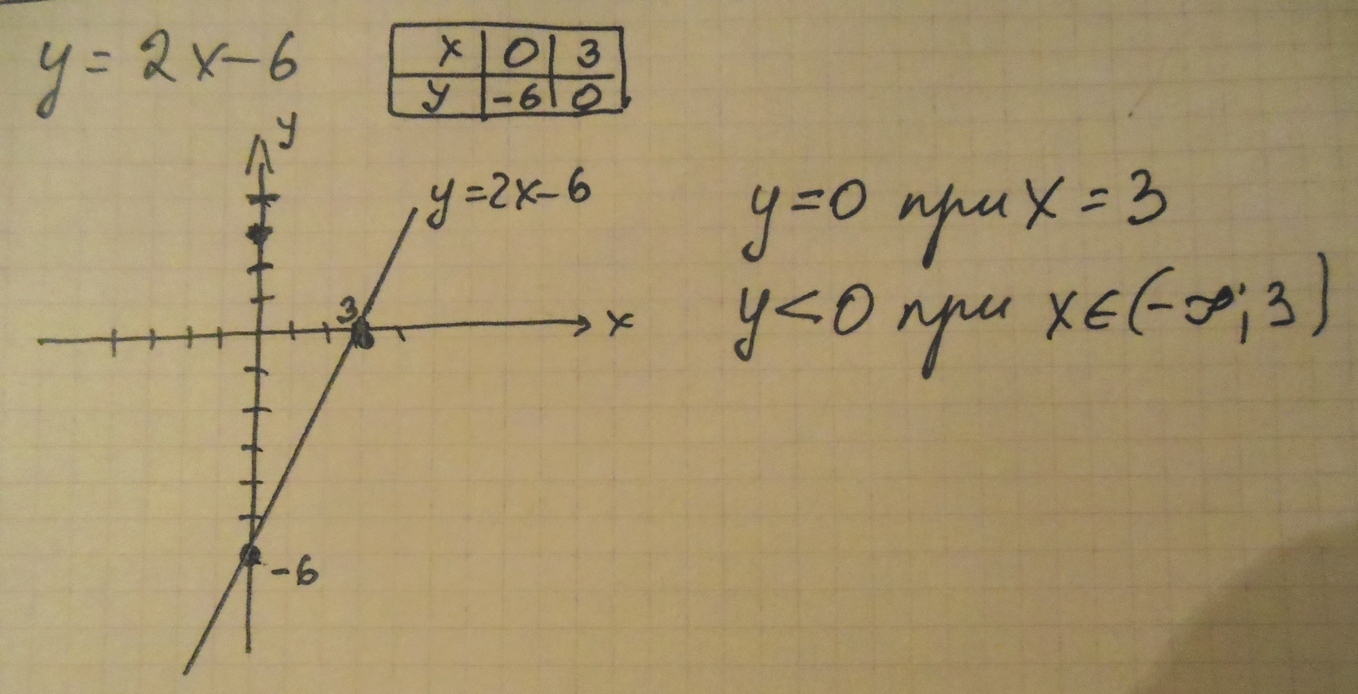 y = 2x-6
x 0 3
y -6 0
y
y=2x-6
3
x
-6
y=0 при x = 3
y<0 при x∈(-∞; 3)